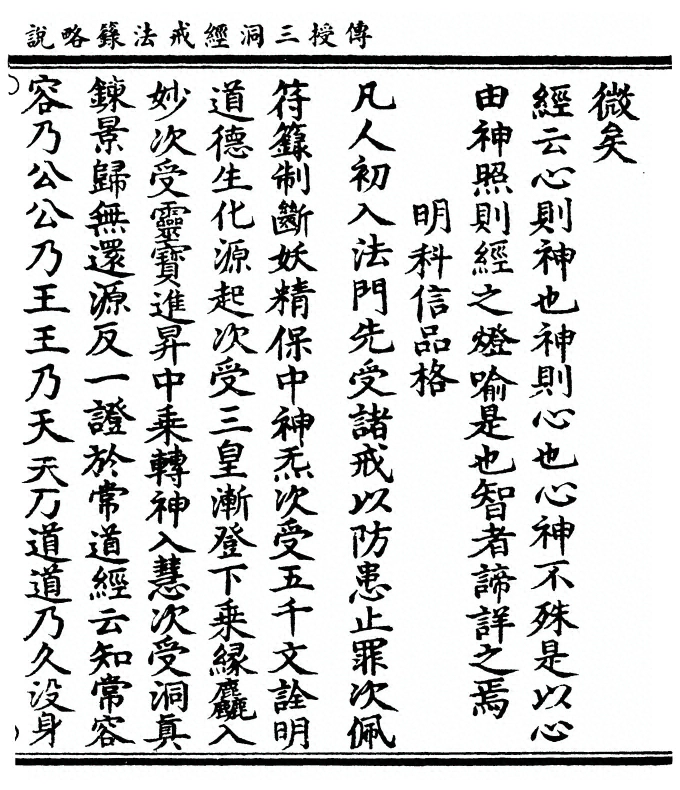 傳授三洞經戒法籙略說
微矣
經云心則神也神則心也心神不殊是以心
由神照則經之燈喻是也智者諦詳之焉
明科信品格
凡人初入法門先受諸戒以防患止罪次佩
符籙制斷妖精保中神炁次受五千文詮明
道德生化源起次受三皇漸登下乘緣麤入
妙次受靈寶進昇中乘轉神入慧次受洞真
鍊景歸無還源反一證於常道經云知常容
容乃公公乃王王乃天天乃道道乃久沒身